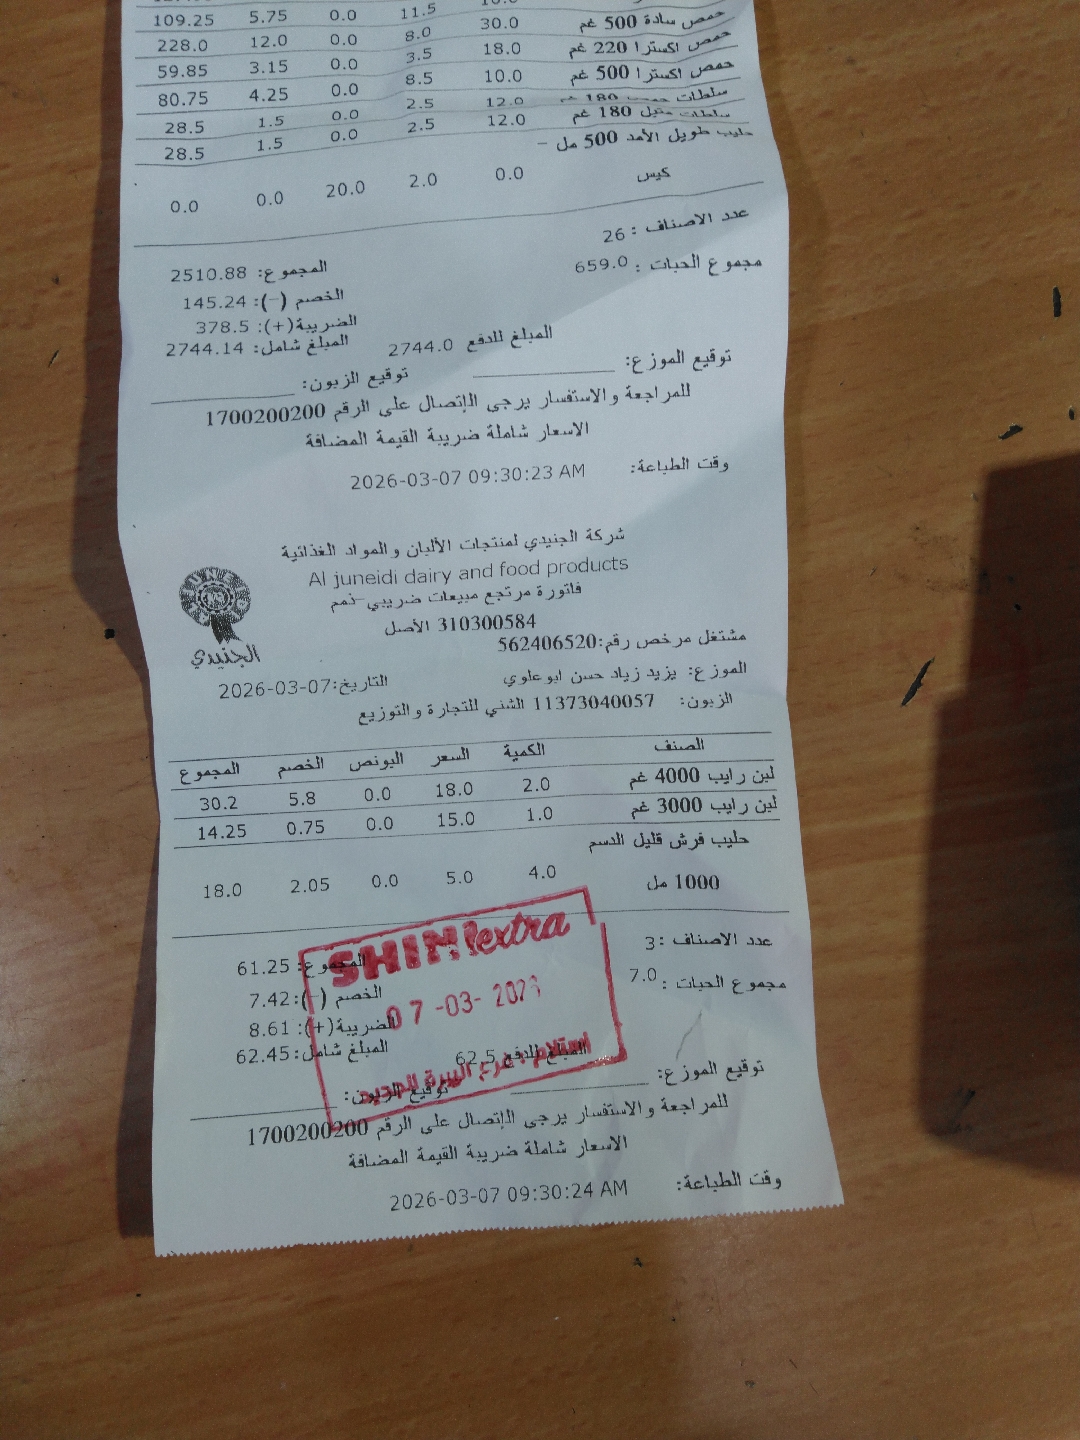 109.25 5.75 0.0 11.5
حمص سادة 500 غم 30.0 8.0 0.0 12.0 228.0
حمص اكسترا 220 غم 18.0 3.5 0.0 3.15 59.85
حمص اكسترا 500 غم 10.0 8.5 0.0 4.25 80.75
سلطات حمص 180 غم 12.0 2.5 0.0 1.5 28.5
سلطات متبل 180 غم 12.0 2.5 0.0 1.5 28.5
حليب طويل الأمد 500 مل -
كيس 0.0 2.0 20.0 0.0 0.0
عدد الاصناف : 26
مجموع الحبات : 659.0 المجموع: 2510.88
الخصم (-): 145.24
الضريبة(+): 378.5
المبلغ للدفع 2744.0 المبلغ شامل: 2744.14
توقيع الموزع: توقيع الزبون:
للمراجعة والاستفسار يرجى الإتصال على الرقم 1700200200
الاسعار شاملة ضريبة القيمة المضافة
وقت الطباعة: 2026-03-07 09:30:23 AM
شركة الجنيدي لمنتجات الألبان والمواد الغذائية
Al juneidi dairy and food products
فاتورة مرتجع مبيعات ضريبي-ذمم
310300584 الأصل
الجنيدي
مشتغل مرخص رقم:562406520
الموزع: يزيد زياد حسن ابوعلوي التاريخ:2026-03-07
الزبون: 11373040057 الشني للتجارة والتوزيع
الصنف الكمية السعر البونص الخصم المجموع
لبن رايب 4000 غم 2.0 18.0 0.0 5.8 30.2
لبن رايب 3000 غم 1.0 15.0 0.0 0.75 14.25
حليب فرش قليل الدسم
1000 مل 4.0 5.0 0.0 2.05 18.0
عدد الاصناف : 3 المجموع: 61.25
مجموع الحبات : 7.0 الخصم (-): 7.42
الضريبة(+): 8.61
المبلغ للدفع 62.5 المبلغ شامل: 62.45
SHINI extra
07-03-2026
استلام فرع البيرة الجديد
توقيع الموزع: توقيع الزبون:
للمراجعة والاستفسار يرجى الإتصال على الرقم 1700200200
الاسعار شاملة ضريبة القيمة المضافة
وقت الطباعة: 2026-03-07 09:30:24 AM